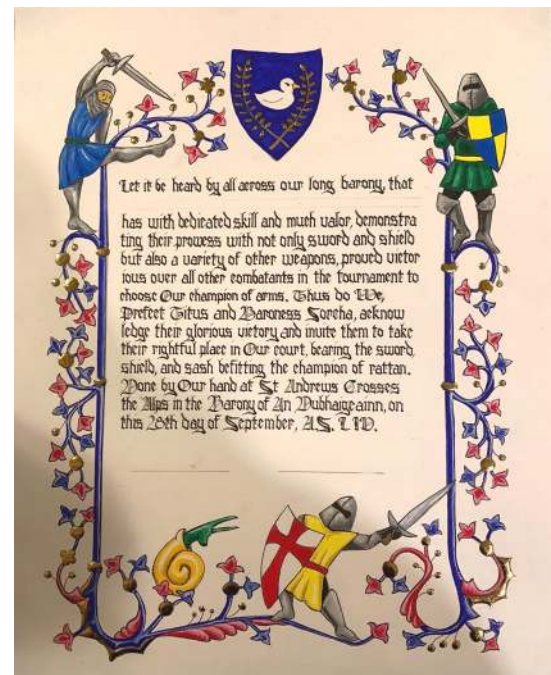 Let it be heard by all across our long barony, that
has with dedicated skill and much valor, demonstra
ting their prowess with not only sword and shield
but also a variety of other weapons, proved victor
ious over all other combatants in the tournament to
choose Our champion of arms. Thus do We,
Prefect Titus and Baroness Sorcha, acknow
ledge their glorious victory and invite them to take
their rightful place in Our court, bearing the sword,
shield, and sash befitting the champion of rattan.
Done by Our hand at St Andrews Crosses
the Alps in the Barony of An Dubhaigeainn, on
this 28th day of September, AS. LIV.